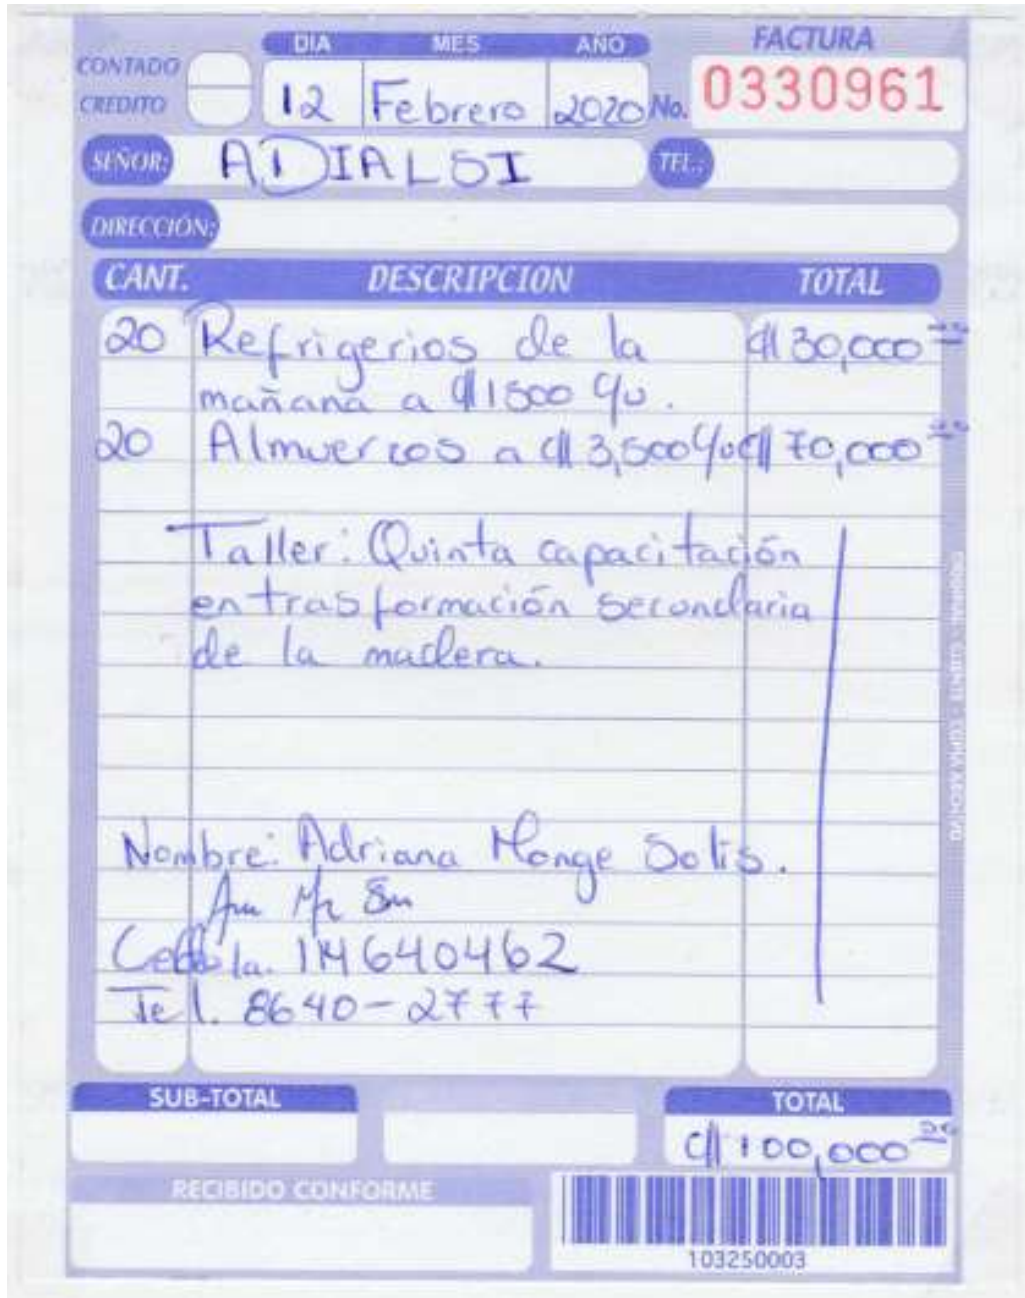 DIA MES AÑO FACTURA
CONTADO
CREDITO 12 Febrero 2020 No. 0330961
SEÑOR: ADIALSI TEL.:
DIRECCIÓN:
CANT. DESCRIPCION TOTAL
20 Refrigerios de la ₡30,000
mañana a ₡1500 c/u.
20 Almuerzos a ₡3,500 c/u ₡70,000
Taller: Quinta capacitación
en trasformación secundaria
de la madera.
ORIGINAL - CLIENTE - COPIA ARCHIVO
Nombre: Adriana Monge Solis.
Cedula. 114640462
Tel. 8640-2777
SUB-TOTAL TOTAL
₡100,000
RECIBIDO CONFORME
103250003